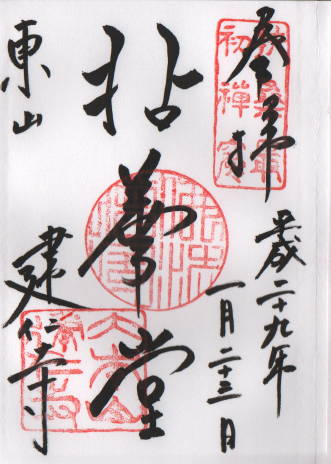 奉拝
平成二十九年
一月二十三日
拈華堂
東山
建仁寺
扶桑最初禅窟